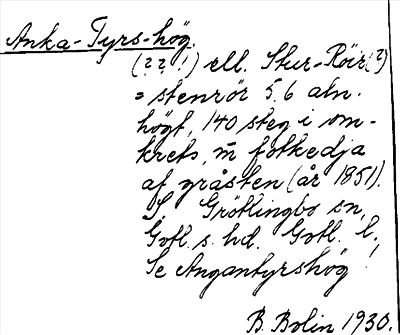 Anka-Tyrs-hög.
(?? !) ell. Stur-Röir(?)
= stenrör 5,6 aln.
högt, 140 steg i om-
krets, m̄ fotkedja
af gråsten (år 1851).
S. Grötlingbo sn,
Gotl. s. hd. Gotl. l.
Se Angantyrshög!
B. Bolin 1930.